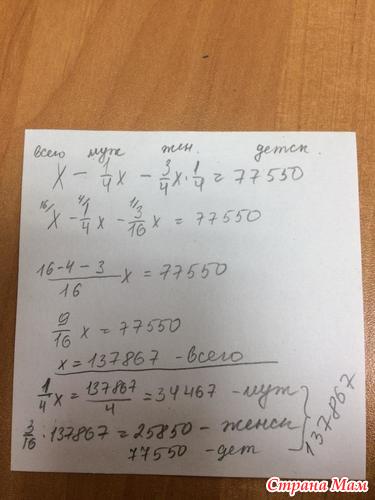 всего муж жен. детск.
X - 1/4 x - 3/4 x · 1/4 = 77550
16/ X - 4/ 1/4 x - 1/ 3/16 x = 77550
16-4-3/16 x = 77550
9/16 x = 77550
x = 137867 - всего
1/4 x = 137867/4 = 34467 - муж
3/16 · 137867 = 25850 - женск
77550 - дет
137867
Страна Мам